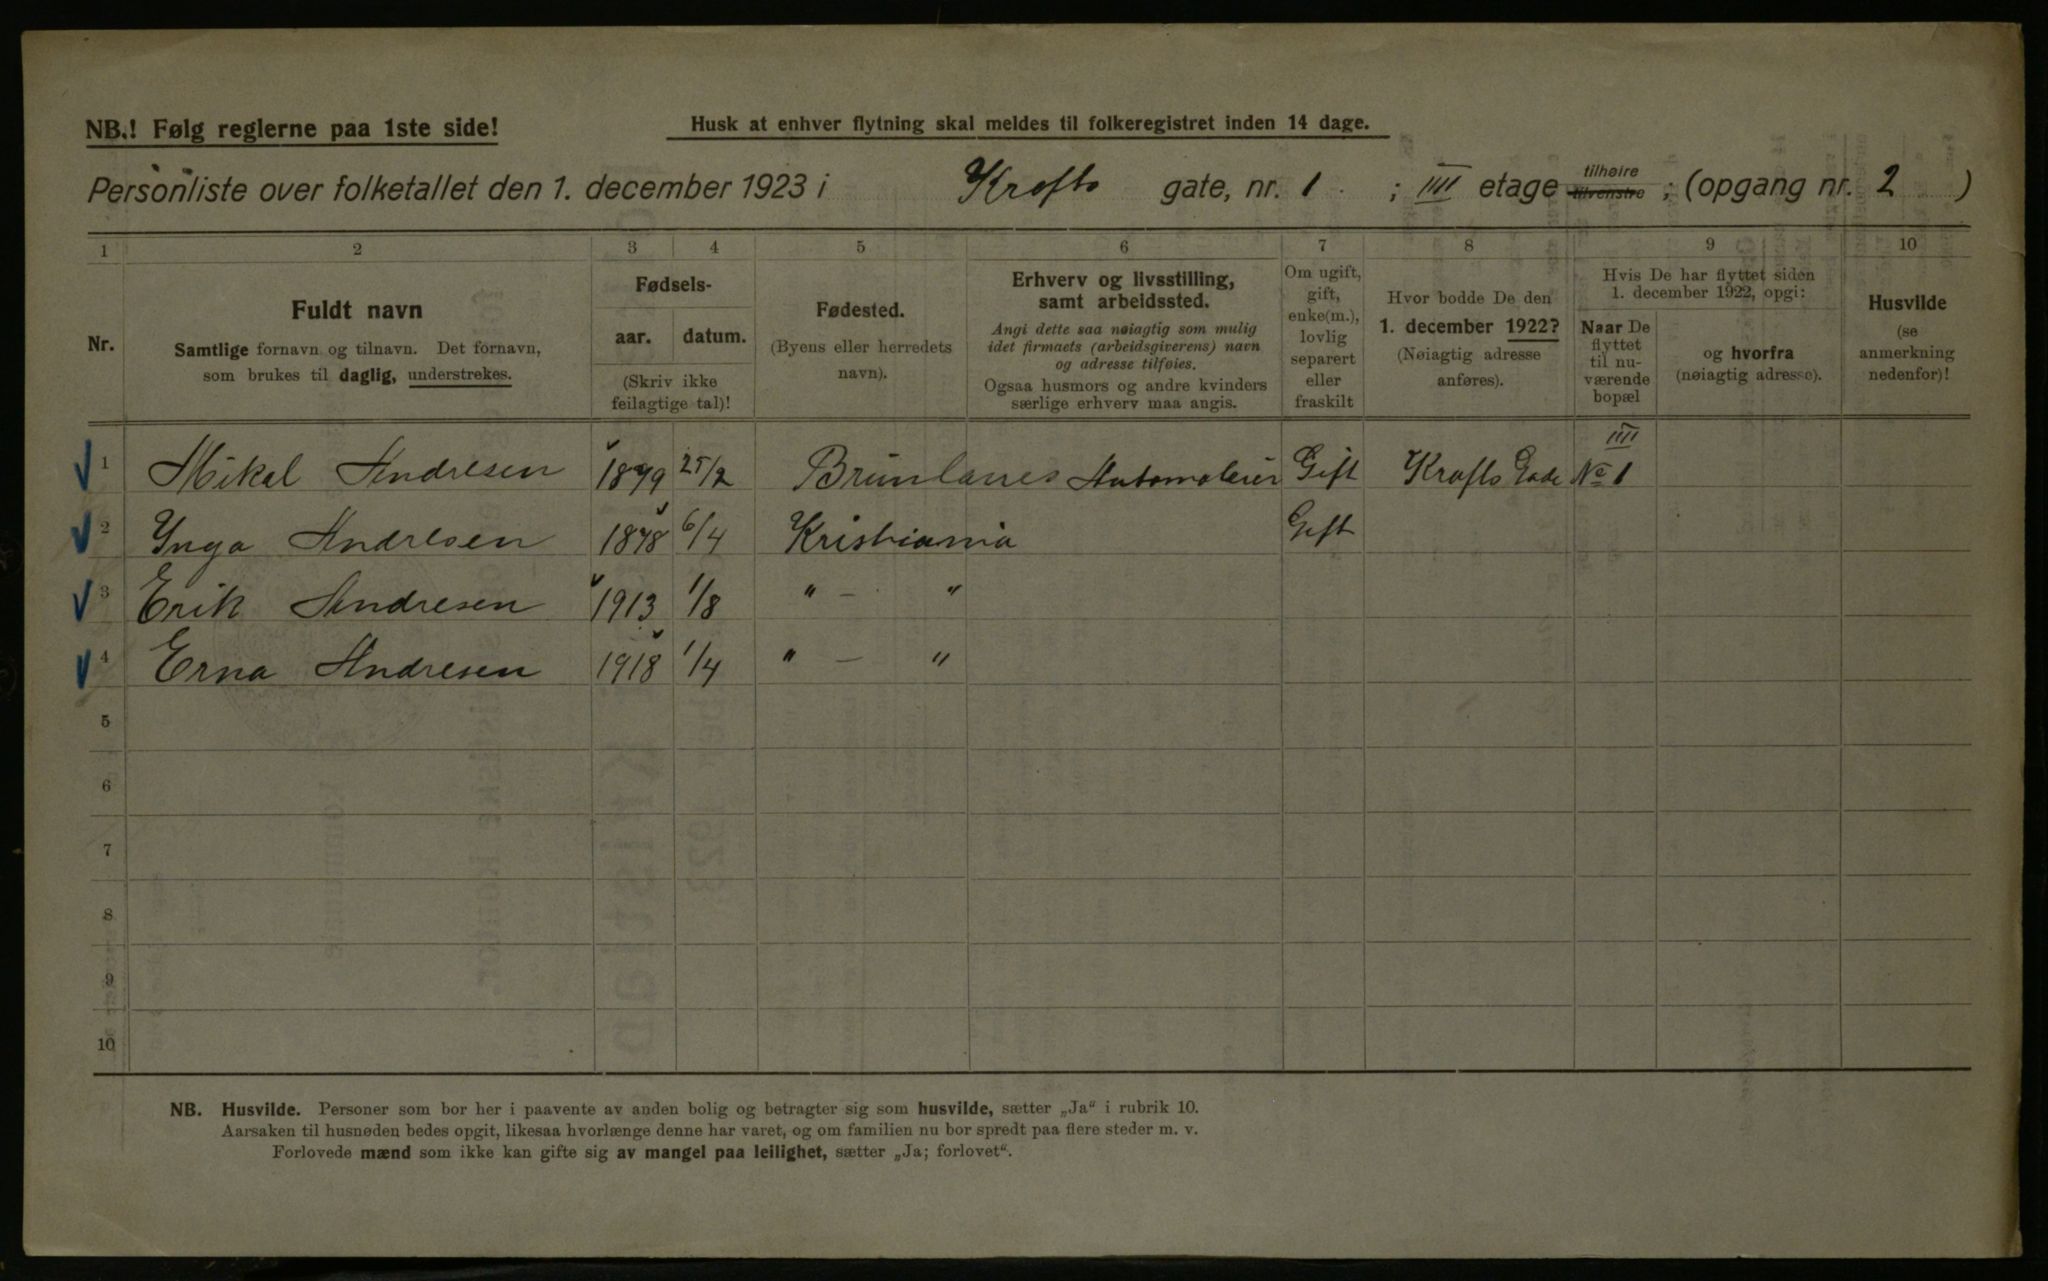 NB.! Følg reglerne paa 1ste side!
Husk at enhver flytning skal meldes til folkeregistret inden 14 dage.
Personliste over folketallet den 1. december 1923 i Krafts gate, nr. 1 ; IIII etage tilhøire tilvenstre ; (opgang nr. 2 )
1 2 3 4 5 6 7 8 9 10
Nr.
Fuldt navn
Samtlige fornavn og tilnavn. Det fornavn,
som brukes til daglig, understrekes.
Fødsels-
aar. datum.
(Skriv ikke
feilagtige tal)!
Fødested.
(Byens eller herredets
navn).
Erhverv og livsstilling,
samt arbeidssted.
Angi dette saa nøiagtig som mulig
idet firmaets (arbeidsgiverens) navn
og adresse tilføies.
Ogsaa husmors og andre kvinders
særlige erhverv maa angis.
Om ugift,
gift,
enke(m.),
lovlig
separert
eller
fraskilt
Hvor bodde De den
1. december 1922?
(Nøiagtig adresse
anføres).
Hvis De har flyttet siden
1. december 1922, opgi:
Naar De
flyttet
til nu-
værende
bopæl
og hvorfra
(nøiagtig adresse).
Husvilde
(se
anmerkning
nedenfor)!
1 Mikal Andresen 1879 25/2 Brunlanes Automoleier Gift Krafts Gade No 1 IIII
2 Inga Andresen 1878 6/4 Kristiania Gift
3 Erik Andresen 1913 1/8 " — "
4 Erna Andresen 1918 1/4 " — "
5
6
7
8
9
10
NB. Husvilde. Personer som bor her i paavente av anden bolig og betragter sig som husvilde, sætter „Ja“ i rubrik 10.
Aarsaken til husnøden bedes opgit, likesaa hvorlænge denne har varet, og om familien nu bor spredt paa flere steder m. v.
Forlovede mænd som ikke kan gifte sig av mangel paa leilighet, sætter „Ja; forlovet“.